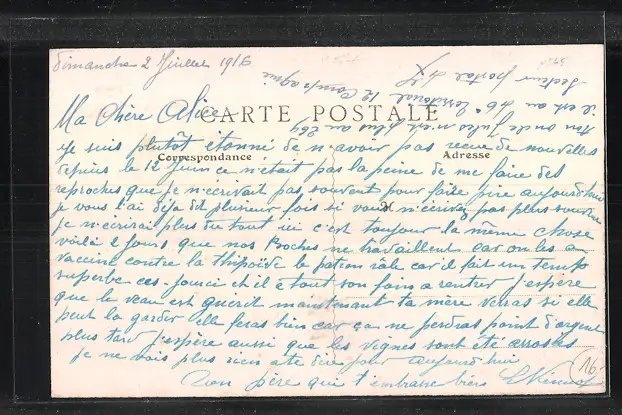 Dimanche 2 Juillet 1916
Ma chère Alice
CARTE POSTALE
Correspondance
Adresse
Je suis plutôt étonné de n'avoir pas reçue de nouvelles
depuis le 12 Juin ce n'était pas la peine de me faire des
reproches que je n'écrivait pas souvent pour faire pire aujourd'hui
je vous l'ai déjà dit plusieur fois si vous n'écrivez pas plus souvent
je n'écrirai plus du tout ici c'est toujour la même chose
voilà 2 jours que nos Boches ne travaillent car on les a
vacciné contre la thipoïde le patron râle car il fait un temps
superbe ces jours ci et il a tout son foin a rentrer j'espère
que le veau est guérit maintenant ta mère verras si elle
peut la garder elle feras bien car ça ne perdras point d'argent
plus tard j'espère aussi que les vignes sont été arrosés
je ne vois plus rien a te dire pour aujourd'hui
Ton père qui t'embrasse bien
ton oncle Jules n'est plus au 269
il est au 46e Territorial 12 Compagnie
Secteur postal
16